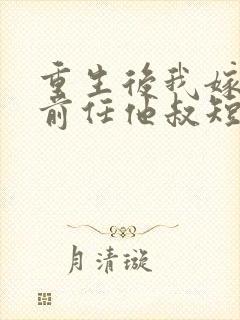 重生後我嫁
前任他叔短
月清璇